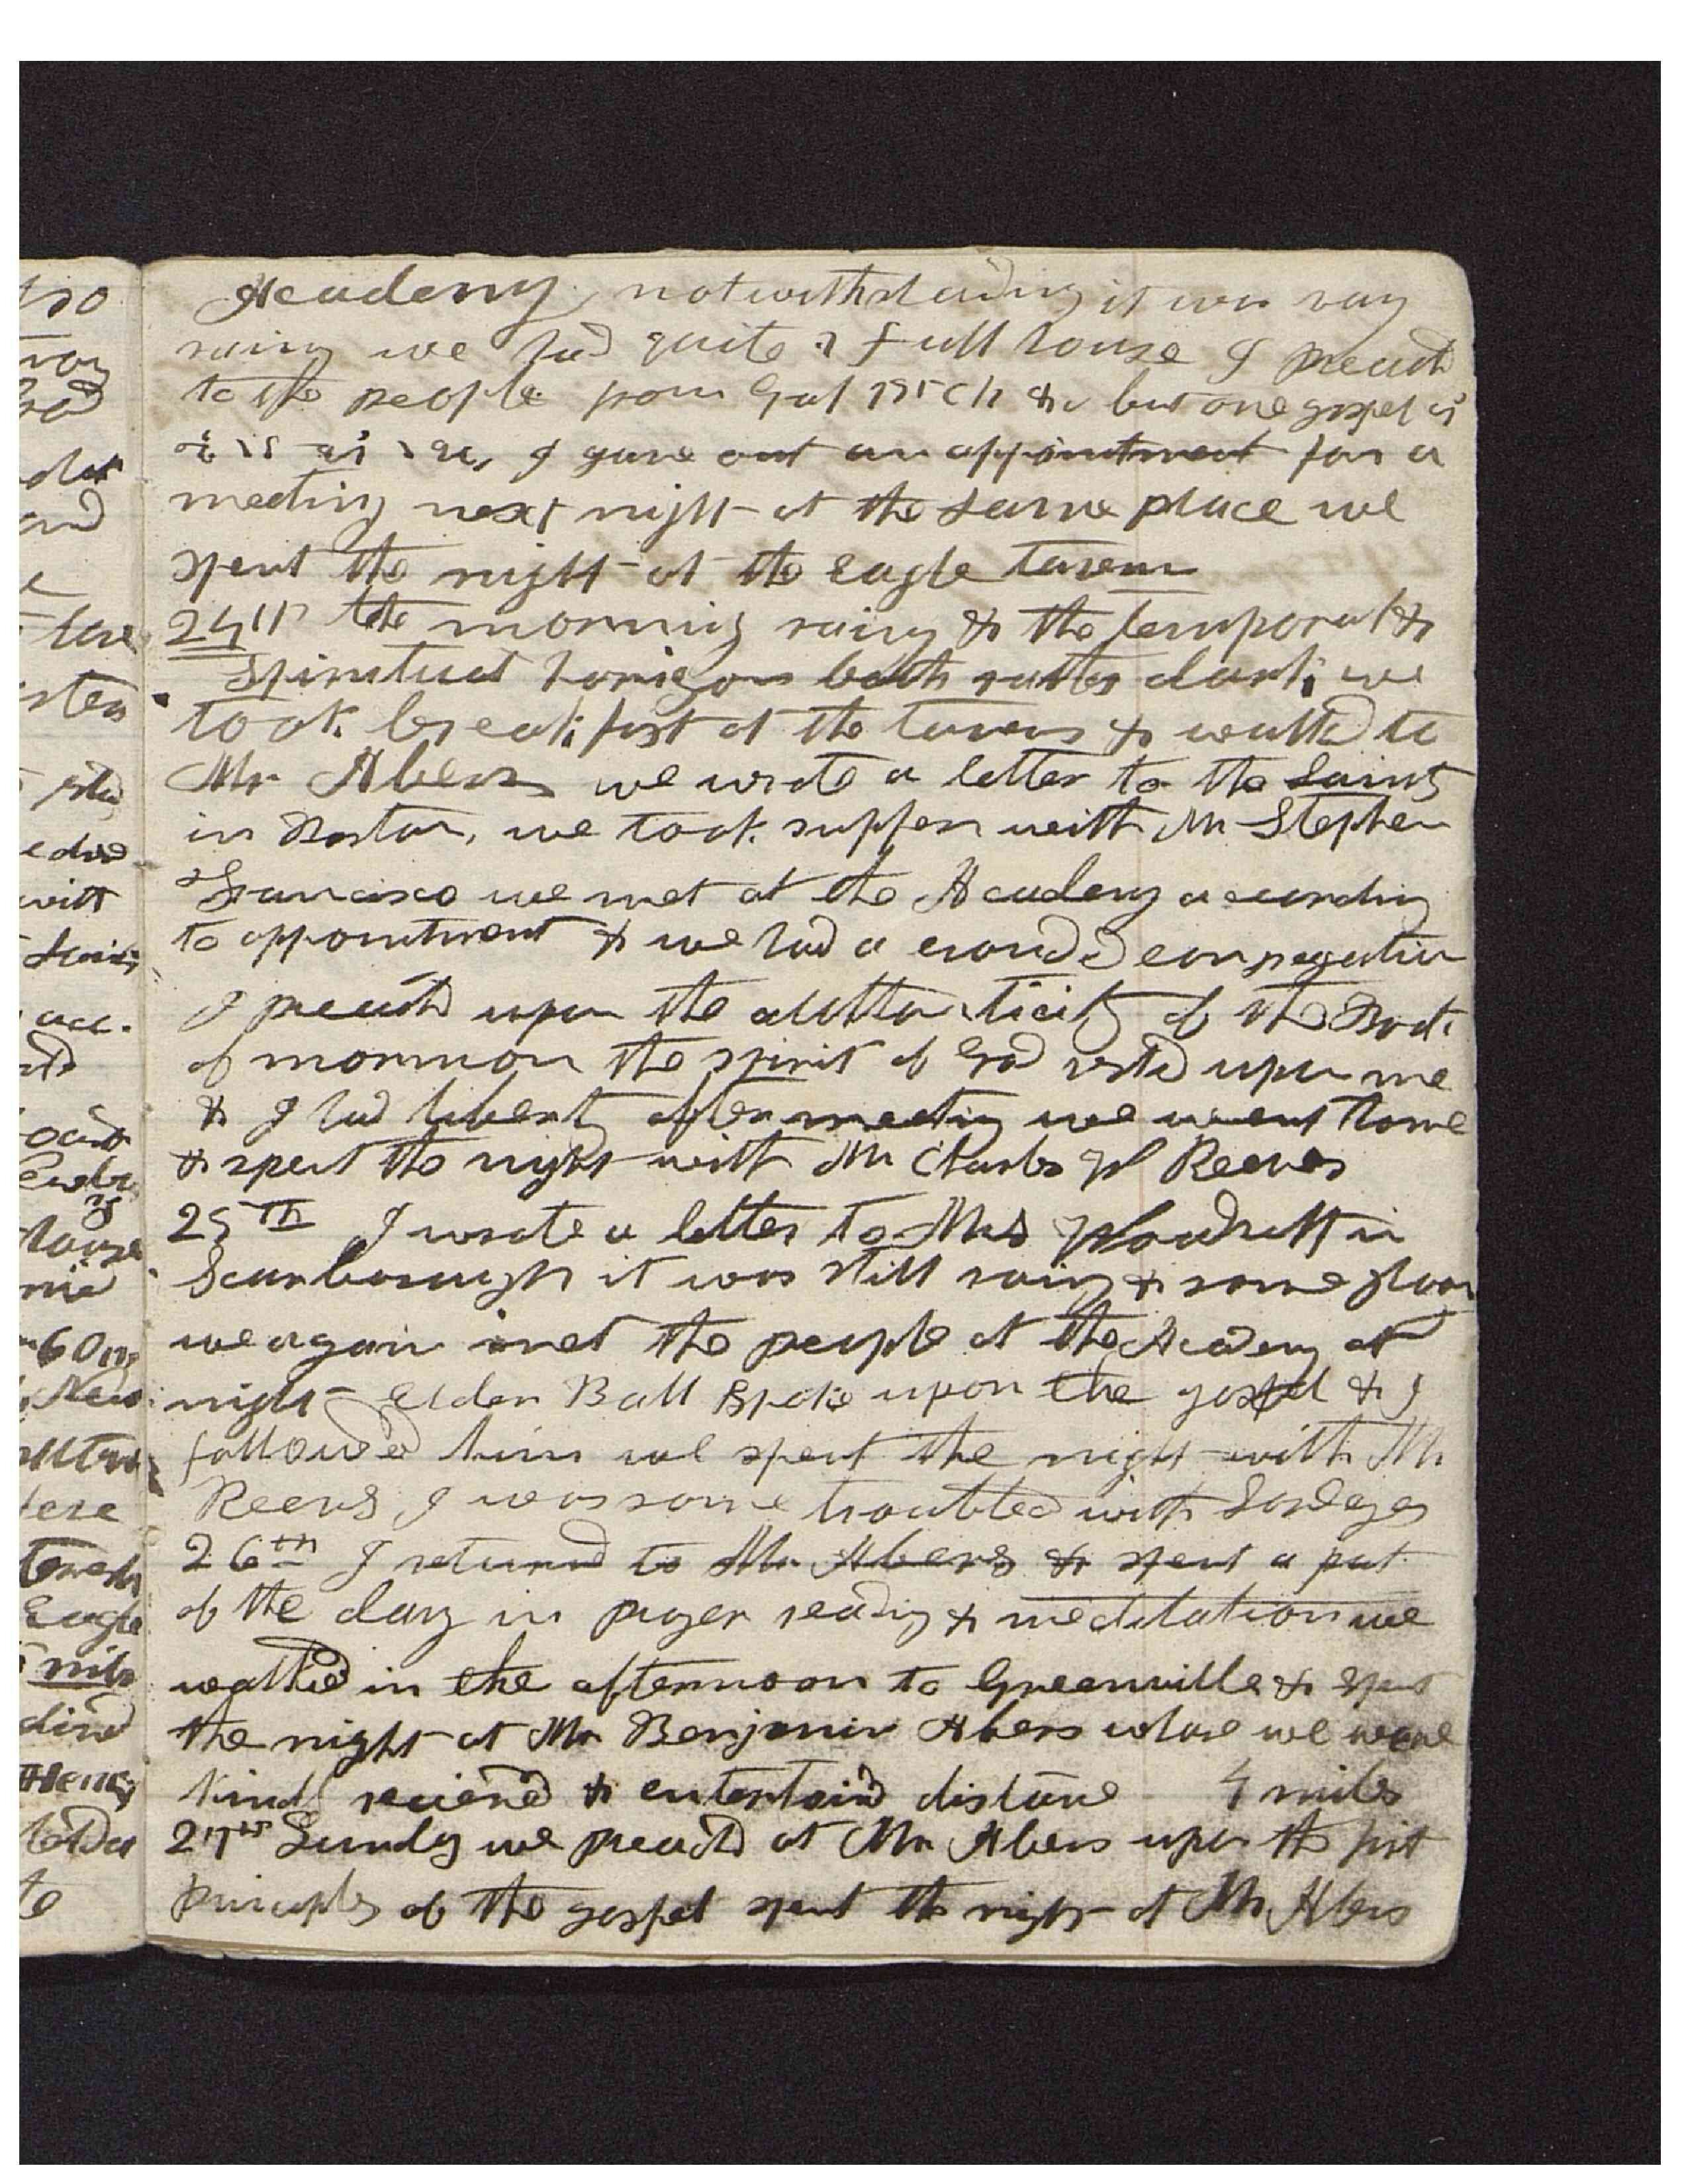 Academy, notwithstanding it was vary
rainy we had quite a full house I preachd
to the people from Gal 1st Ch &c but one gospel
I gave out an appointment for a
meeting next night at the same place we
spent the night at the Eagle tavern
24th the morning rainy & the temporal &
spiritual horizons both rather dark we
took breakfast at the tavern & walked to
Mr Abers we wrote a letter to the Saints
in Boston, we took supper with Mr Stephen
Francisco we met at the Academy according
to appointment & we had a crowded congregation
I preachd upon the authanticity of the Book
of mormon the spirit of God rested upon me
& I had liberty after meeting we went home
& spent the night with Mr Charles W Reeves
25th I wrote a letter to Mrs Woodruff in
Scarborough it was still rainy & some gloomy
we again met the people at the Academy at
night Elder Ball spoke upon the gospel & I
followed him we spent the night with Mr
Reeves I was some troubled with sore eyes
26th I returnd to Mr Abers & spent a part
of the day in prayer reading & meditation we
walked in the afternoon to Greenville & spent
the night at Mr Benjamin Abers whare we weare
kindly recieved & entertaind distance 4 miles
27th Sunday we preachd at Mr Abers upon the first
principles of the gospel spent the night at Mr Abers